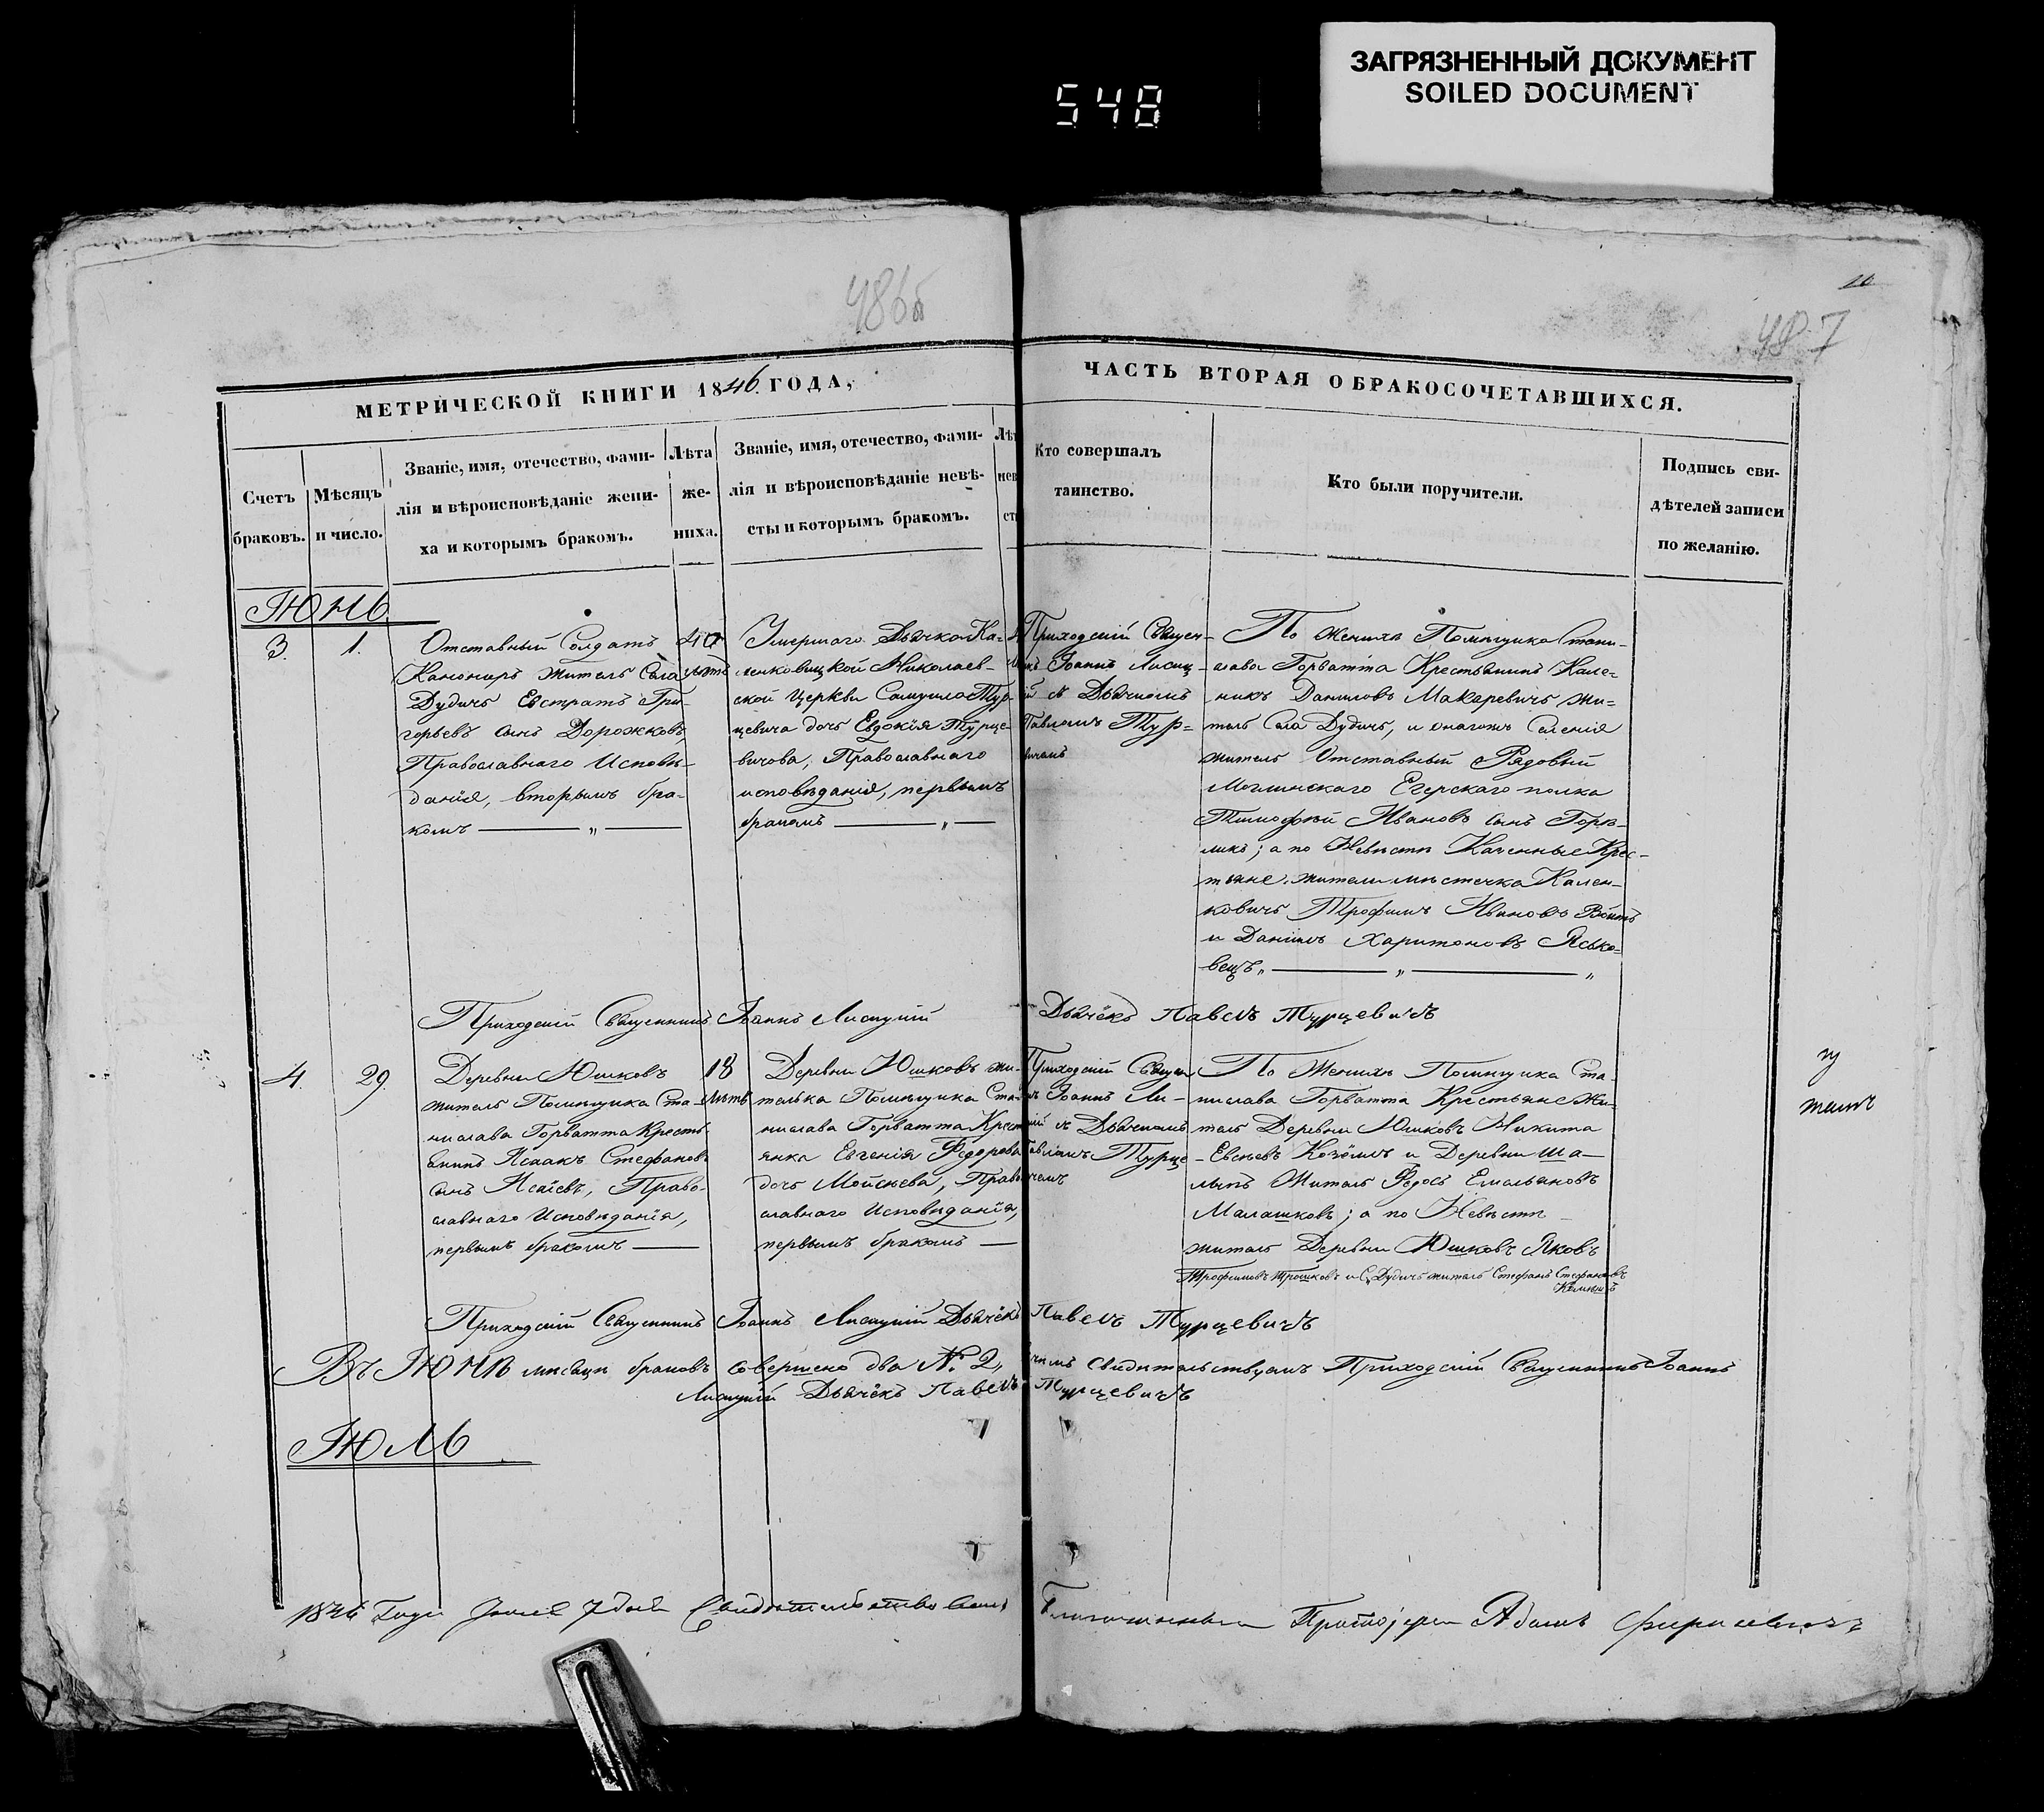 ЗАГРЯЗНЕННЫЙ ДОКУМЕНТ
SOILED DOCUMENT
548
486б
10
487
МЕТРИЧЕСКОЙ КНИГИ 1846. ГОДА,
ЧАСТЬ ВТОРАЯ О БРАКОСОЧЕТАВШИХСЯ.
Счетъ
браковъ.
Мѣсяцъ
и число.
Званіе, имя, отечество, фами-
лія и вѣроисповѣданіе жени-
ха и которымъ бракомъ.
Лѣта
же-
ниха.
Званіе, имя, отечество, фами-
лія и вѣроисповѣданіе невѣ-
сты и которымъ бракомъ.
Лѣт
нев
ст
Кто совершалъ
таинство.
Кто были поручители.
Подпись сви-
дѣтелей записи
по желанію.
ІЮНЬ
3.
1.
Отставный Солдатъ
Канониръ житель Села
Дудичъ Евстратъ Гри-
горьевъ сынъ Дорожковъ,
Православнаго Исповѣ-
данія, вторымъ бра-
комъ — „ —
40
лѣтъ
Умершаго Дьячка Ка-
ленковицкой Николаев-
ской Церкви Самуила Тур-
цевича дочь Евдокія Турце-
вичова, Православнаго
исповѣданія, первымъ
бракомъ — „ —
Приходскій Священ-
Іоаннъ Лисиц-
ій съ Дьячкомъ
Павломъ Тур-
По Жениха Помѣщика Стани-
слава Горватта Крестьянинъ Кале-
никъ Даниловъ Макаревичъ жи-
тель Села Дудичъ, и онагожъ Селенія
житель Отставный Рядовый
Егерскаго полка
Тимофей Ивановъ сынъ Горѣ-
ликъ; а по Невѣсти Каченные Крес-
тьяне жители мѣстечка Кален-
ковичъ Трофимъ Ивановъ Войтъ
и Данило Харитоновъ Ясько-
вецъ„ — „ — „
Приходскій Священникъ Іоаннъ Лисицкій Дьячёкъ Павелъ Турцевичъ
4.
29.
Деревни Юшковъ
житель Помѣщика Ста-
нислава Горватта Кресть-
янинъ Исаакъ Стефановъ
сынъ Исаіевъ, Право-
славнаго Исповѣданія,
первымъ бракомъ —
18
лѣтъ
Деревни Юшковъ жи-
телька Помѣщика Ста-
нислава Горватта Крест
янка Евгенія Федорова
дочь Мойсѣева, Право
славнаго Исповѣданія,
первымъ бракомъ —
Приходскій Священ
Іоаннъ Ли-
ій съ Дьячкомъ
Павломъ Турце-
чемъ
По Женихѣ Помѣщика Ста-
нислава Горватта Крестьяне жи-
тель Деревни Юшковъ Никита
Евсѣевъ и Деревни Ша-
Житель Ѳедосъ Емельяновъ
Малашковъ; а по Невѣсти
житель Деревни Юшковъ Яковъ
Трофимовъ Трошковъ и С. Дудичъ житель Стефанъ Стефановъ
Приходскій Священникъ Іоаннъ Лисицкій Дьячёкъ Павелъ Турцевичъ
Въ ІЮНЬ мѣсяцѣ браковъ совершено два № 2, чимъ свидѣтельствуемъ Приходскій Священникъ Іоаннъ
Лисицкій Дьячёкъ Павелъ Турцевичъ
ІЮЛЬ
1846 Года Іюля 7 дня Свидѣтельствовалъ Благочинный Протоіерей Адамъ